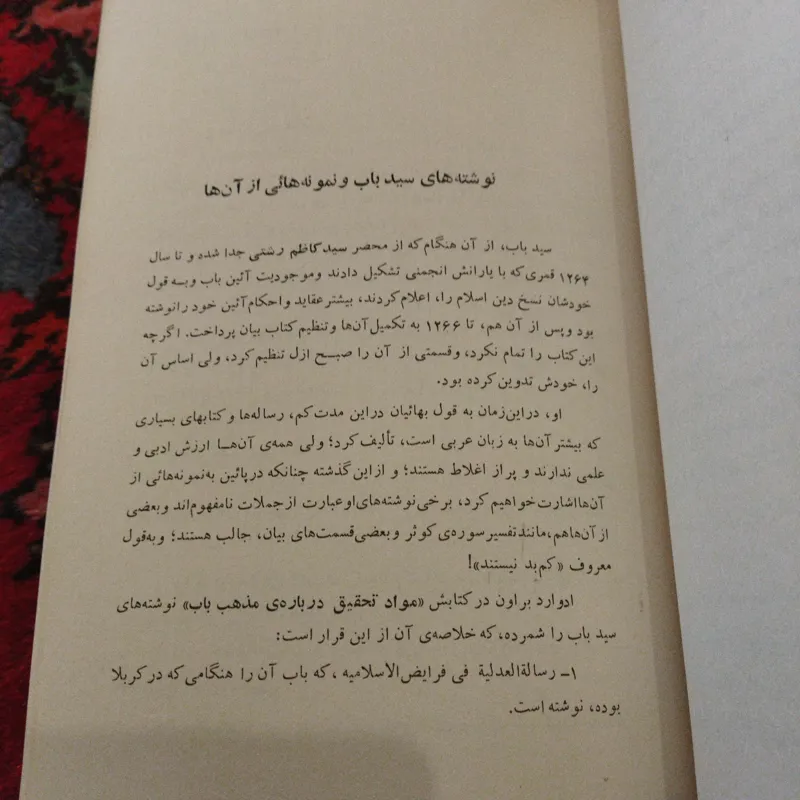 نوشته‌های سید باب و نمونه‌هائی از آن‌ها
سید باب، از آن هنگام که از محضر سید کاظم رشتی جدا شده و تا سال
۱۲۶۴ قمری که با یارانش انجمنی تشکیل دادند و موجودیت آئین باب و به قول
خودشان نسخ دین اسلام را، اعلام کردند، بیشتر عقاید و احکام آئین خود را نوشته
بود و پس از آن هم، تا ۱۲۶۶ به تکمیل آن‌ها و تنظیم کتاب بیان پرداخت. اگرچه
این کتاب را تمام نکرد، و قسمتی از آن را صبح ازل تنظیم کرد، ولی اساس آن
را، خودش تدوین کرده بود.
او، در این زمان به قول بهائیان در این مدت کم، رساله‌ها و کتابهای بسیاری
که بیشتر آن‌ها به زبان عربی است، تألیف کرد؛ ولی همه‌ی آن‌ها ارزش ادبی و
علمی ندارند و پر از اغلاط هستند؛ و از این گذشته چنانکه در پائین به نمونه‌هائی از
آن‌ها اشارت خواهیم کرد، برخی نوشته‌های او عبارت از جملات نامفهوم‌اند و بعضی
از آن‌ها هم، مانند تفسیر سوره‌ی کوثر و بعضی قسمت‌های بیان، جالب هستند؛ و به قول
معروف «کم بد نیستند»!
ادوارد براون در کتابش «مواد تحقیق درباره‌ی مذهب باب» نوشته‌های
سید باب را شمرده، که خلاصه‌ی آن از این قرار است:
۱ـ رسالة العدلیة فی فرایض الاسلامیه، که باب آن را هنگامی که در کربلا
بوده، نوشته است.